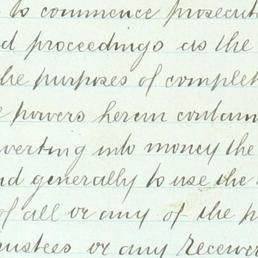 to commence prosecute
d proceedings as the
he purposes of complet
e powers herein contain
verting into money the
nd generally to use the
of all or any of the p
rustees or any Receiver